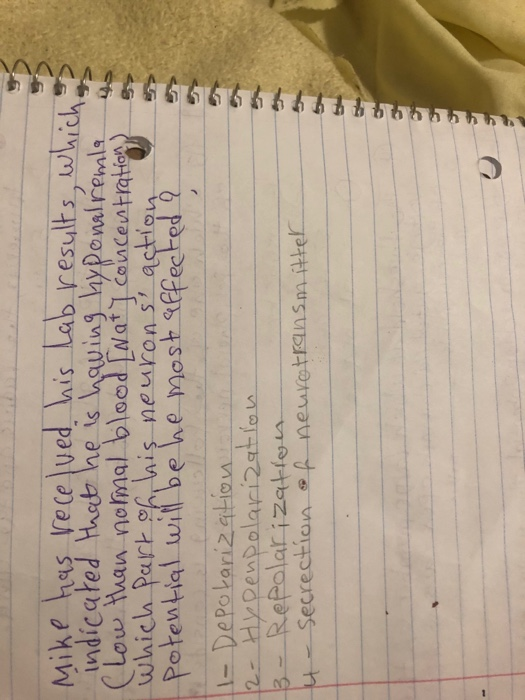 Mike has received his lab results, which
indicated that he is having hyponatremia
(low than normal blood [Na+] concentration)
which part of his neurons' action
potential will be he most affected?
1- Depolarization
2- Hyperpolarization
3- Repolarization
4- secrection of neurotransmitter